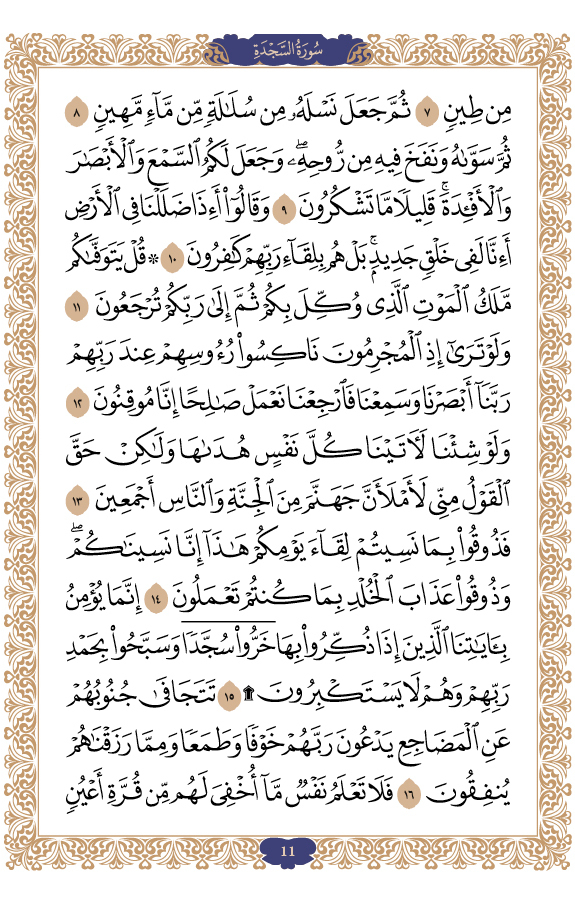 سُورَةُ السَّجْدَةِ
مِن طِينٍ ٧ ثُمَّ جَعَلَ نَسْلَهُۥ مِن سُلَٰلَةٍ مِّن مَّآءٍ مَّهِينٍ ٨
ثُمَّ سَوَّىٰهُ وَنَفَخَ فِيهِ مِن رُّوحِهِۦۖ وَجَعَلَ لَكُمُ ٱلسَّمْعَ وَٱلْأَبْصَٰرَ
وَٱلْأَفْـِٔدَةَۚ قَلِيلًا مَّا تَشْكُرُونَ ٩ وَقَالُوٓا۟ أَءِذَا ضَلَلْنَا فِى ٱلْأَرْضِ
أَءِنَّا لَفِى خَلْقٍ جَدِيدٍۭۚ بَلْ هُم بِلِقَآءِ رَبِّهِمْ كَٰفِرُونَ ١٠ ۞ قُلْ يَتَوَفَّىٰكُم
مَّلَكُ ٱلْمَوْتِ ٱلَّذِى وُكِّلَ بِكُمْ ثُمَّ إِلَىٰ رَبِّكُمْ تُرْجَعُونَ ١١
وَلَوْ تَرَىٰٓ إِذِ ٱلْمُجْرِمُونَ نَاكِسُوا۟ رُءُوسِهِمْ عِندَ رَبِّهِمْ
رَبَّنَآ أَبْصَرْنَا وَسَمِعْنَا فَٱرْجِعْنَا نَعْمَلْ صَٰلِحًا إِنَّا مُوقِنُونَ ١٢
وَلَوْ شِئْنَا لَءَاتَيْنَا كُلَّ نَفْسٍ هُدَىٰهَا وَلَٰكِنْ حَقَّ
ٱلْقَوْلُ مِنِّى لَأَمْلَأَنَّ جَهَنَّمَ مِنَ ٱلْجِنَّةِ وَٱلنَّاسِ أَجْمَعِينَ ١٣
فَذُوقُوا۟ بِمَا نَسِيتُمْ لِقَآءَ يَوْمِكُمْ هَٰذَآ إِنَّا نَسِينَٰكُمْۖ
وَذُوقُوا۟ عَذَابَ ٱلْخُلْدِ بِمَا كُنتُمْ تَعْمَلُونَ ١٤ إِنَّمَا يُؤْمِنُ
بِـَٔايَٰتِنَا ٱلَّذِينَ إِذَا ذُكِّرُوا۟ بِهَا خَرُّوا۟ سُجَّدًا وَسَبَّحُوا۟ بِحَمْدِ
رَبِّهِمْ وَهُمْ لَا يَسْتَكْبِرُونَ ۩ ١٥ تَتَجَافَىٰ جُنُوبُهُمْ
عَنِ ٱلْمَضَاجِعِ يَدْعُونَ رَبَّهُمْ خَوْفًا وَطَمَعًا وَمِمَّا رَزَقْنَٰهُمْ
يُنفِقُونَ ١٦ فَلَا تَعْلَمُ نَفْسٌ مَّآ أُخْفِىَ لَهُم مِّن قُرَّةِ أَعْيُنٍ
11